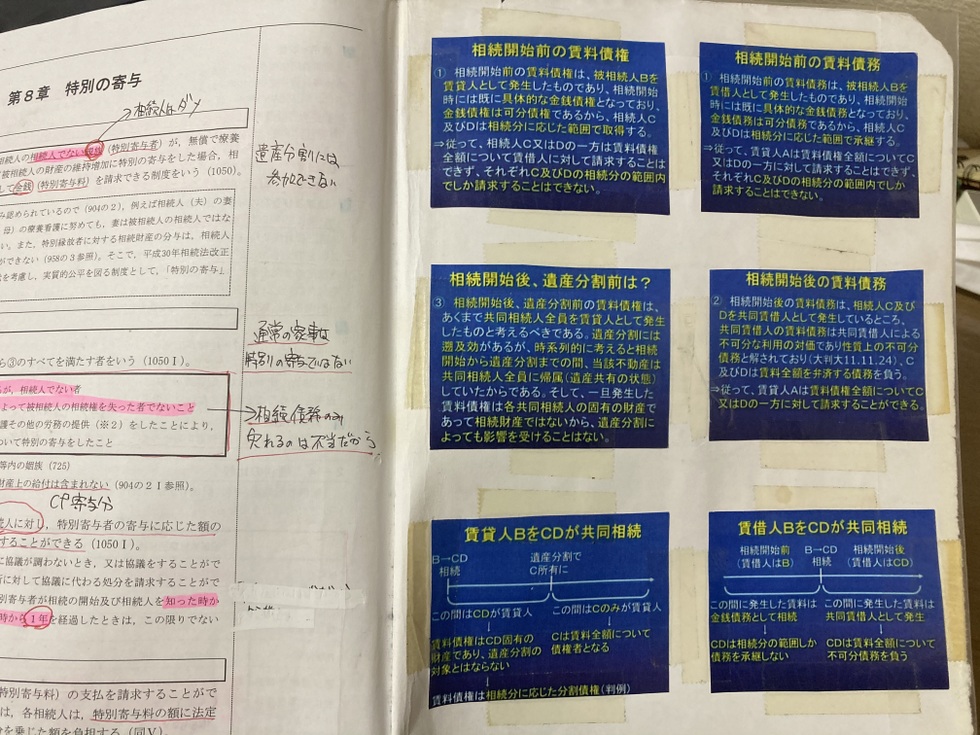 第8章 特別の寄与
相続人はダメ
相続人の相続人でない親族(特別寄与者)が、無償で療養
被相続人の財産の維持増加に特別の寄与をした場合，相
して金銭(特別寄与料)を請求できる制度をいう(1050)。
遺産分割には
参加できない
み認められているので(904の2)，例えば相続人(夫)の妻
母)の療養看護に努めても，妻は被相続人の相続人ではな
い。また，特別縁故者に対する相続財産の分与は，相続人
ができない(958の3参照)。そこで，平成30年相続法改正
を考慮し，実質的公平を図る制度として，「特別の寄与」
通常の家事は
特別の寄与ではない
ら③のすべてを満たす者をいう(1050Ⅰ)。
るが，相続人でない者
よって被相続人の相続権を失った者でないこと
護その他の労務の提供(※2)をしたことにより，
ついて特別の寄与をしたこと
→相続債務のみ
失れるのは不当だから
等内の姻族(725)
財産上の給付は含まれない(904の2Ⅰ参照)。
CP寄与分
人に対し，特別寄与者の寄与に応じた額の
することができる(1050Ⅰ)。
に協議が調わないとき，又は協議をすることがで
所に対して協議に代わる処分を請求することがで
別寄与者が相続の開始及び相続人を知った時か
時から1年を経過したときは，この限りでない
特別寄与料)の支払を請求することがで
は，各相続人は，特別寄与料の額に法定
分を乗じた額を負担する(同Ⅴ)。
相続開始前の賃料債権
① 相続開始前の賃料債権は、被相続人Bを
賃貸人として発生したものであり、相続開始
時には既に具体的な金銭債権となっており、
金銭債権は可分債権であるから、相続人C
及びDは相続分に応じた範囲で取得する。
⇒従って、相続人C又はDの一方は賃料債権
全額について賃借人に対して請求することは
できず、それぞれC及びDの相続分の範囲内
でしか請求することはできない。
相続開始前の賃料債務
① 相続開始前の賃料債務は、被相続人Bを
賃借人として発生したものであり、相続開始
時には既に具体的な金銭債務となっており、
金銭債務は可分債務であるから、相続人C
及びDは相続分に応じた範囲で承継する。
⇒従って、賃貸人Aは賃料債権全額についてC
又はDの一方に対して請求することはできず、
それぞれC及びDの相続分の範囲内でしか
請求することはできない。
相続開始後、遺産分割前は？
③ 相続開始後、遺産分割前の賃料債権は、
あくまで共同相続人全員を賃貸人として発生
したものと考えるべきである。遺産分割には
遡及効があるが、時系列的に考えると相続
開始から遺産分割までの間、当該不動産は
共同相続人全員に帰属(遺産共有の状態)
していたからである。そして、一旦発生した
賃料債権は各共同相続人の固有の財産で
あって相続財産ではないから、遺産分割に
よっても影響を受けることはない。
相続開始後の賃料債務
② 相続開始後の賃料債務は、相続人C及び
Dを共同賃借人として発生しているところ、
共同賃借人の賃料債務は共同賃借人による
不可分な利用の対価であり性質上の不可分
債務と解されており(大判大11.11.24)、C
及びDは賃料全額を弁済する債務を負う。
⇒従って、賃貸人Aは賃料債権全額についてC
又はDの一方に対して請求することができる。
賃貸人BをCDが共同相続
B→CD
相続
遺産分割で
C所有に
この間はCDが賃貸人
この間はCのみが賃貸人
賃料債権はCD固有の
財産であり、遺産分割の
対象とはならない
Cは賃料全額について
債権者となる
賃料債権は相続分に応じた分割債権(判例)
賃借人BをCDが共同相続
相続開始前
(賃借人はB)
B→CD
相続
相続開始後
(賃借人はCD)
この間に発生した賃料は
金銭債務として相続
この間に発生した賃料は
共同賃借人として発生
CDは相続分の範囲しか
債務を承継しない
CDは賃料全額について
不可分債務を負う